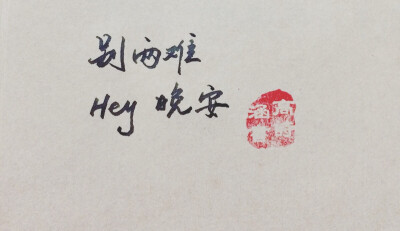 别两难
Hey 晚安